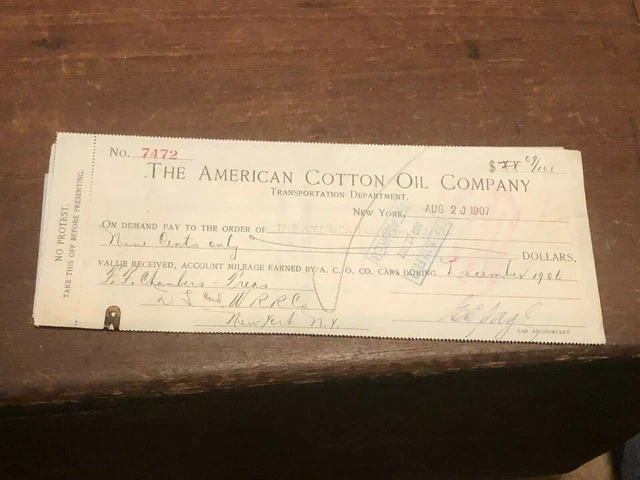 No. 7472
$ XX 09/100
THE AMERICAN COTTON OIL COMPANY
TRANSPORTATION DEPARTMENT.
NEW YORK, AUG 20 1907
ON DEMAND PAY TO THE ORDER OF THE AMERICAN
Nine Cents only DOLLARS,
VALUE RECEIVED, ACCOUNT MILEAGE EARNED BY A. C. O. CO. CARS DURING December 1906
F. F. Chambers - Treas
D L and W R R Co
New York N.Y.
CAR ACCOUNTANT
NO PROTEST.
TAKE THIS OFF BEFORE PRESENTING.